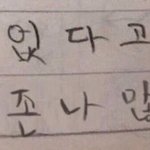 없다고
존나